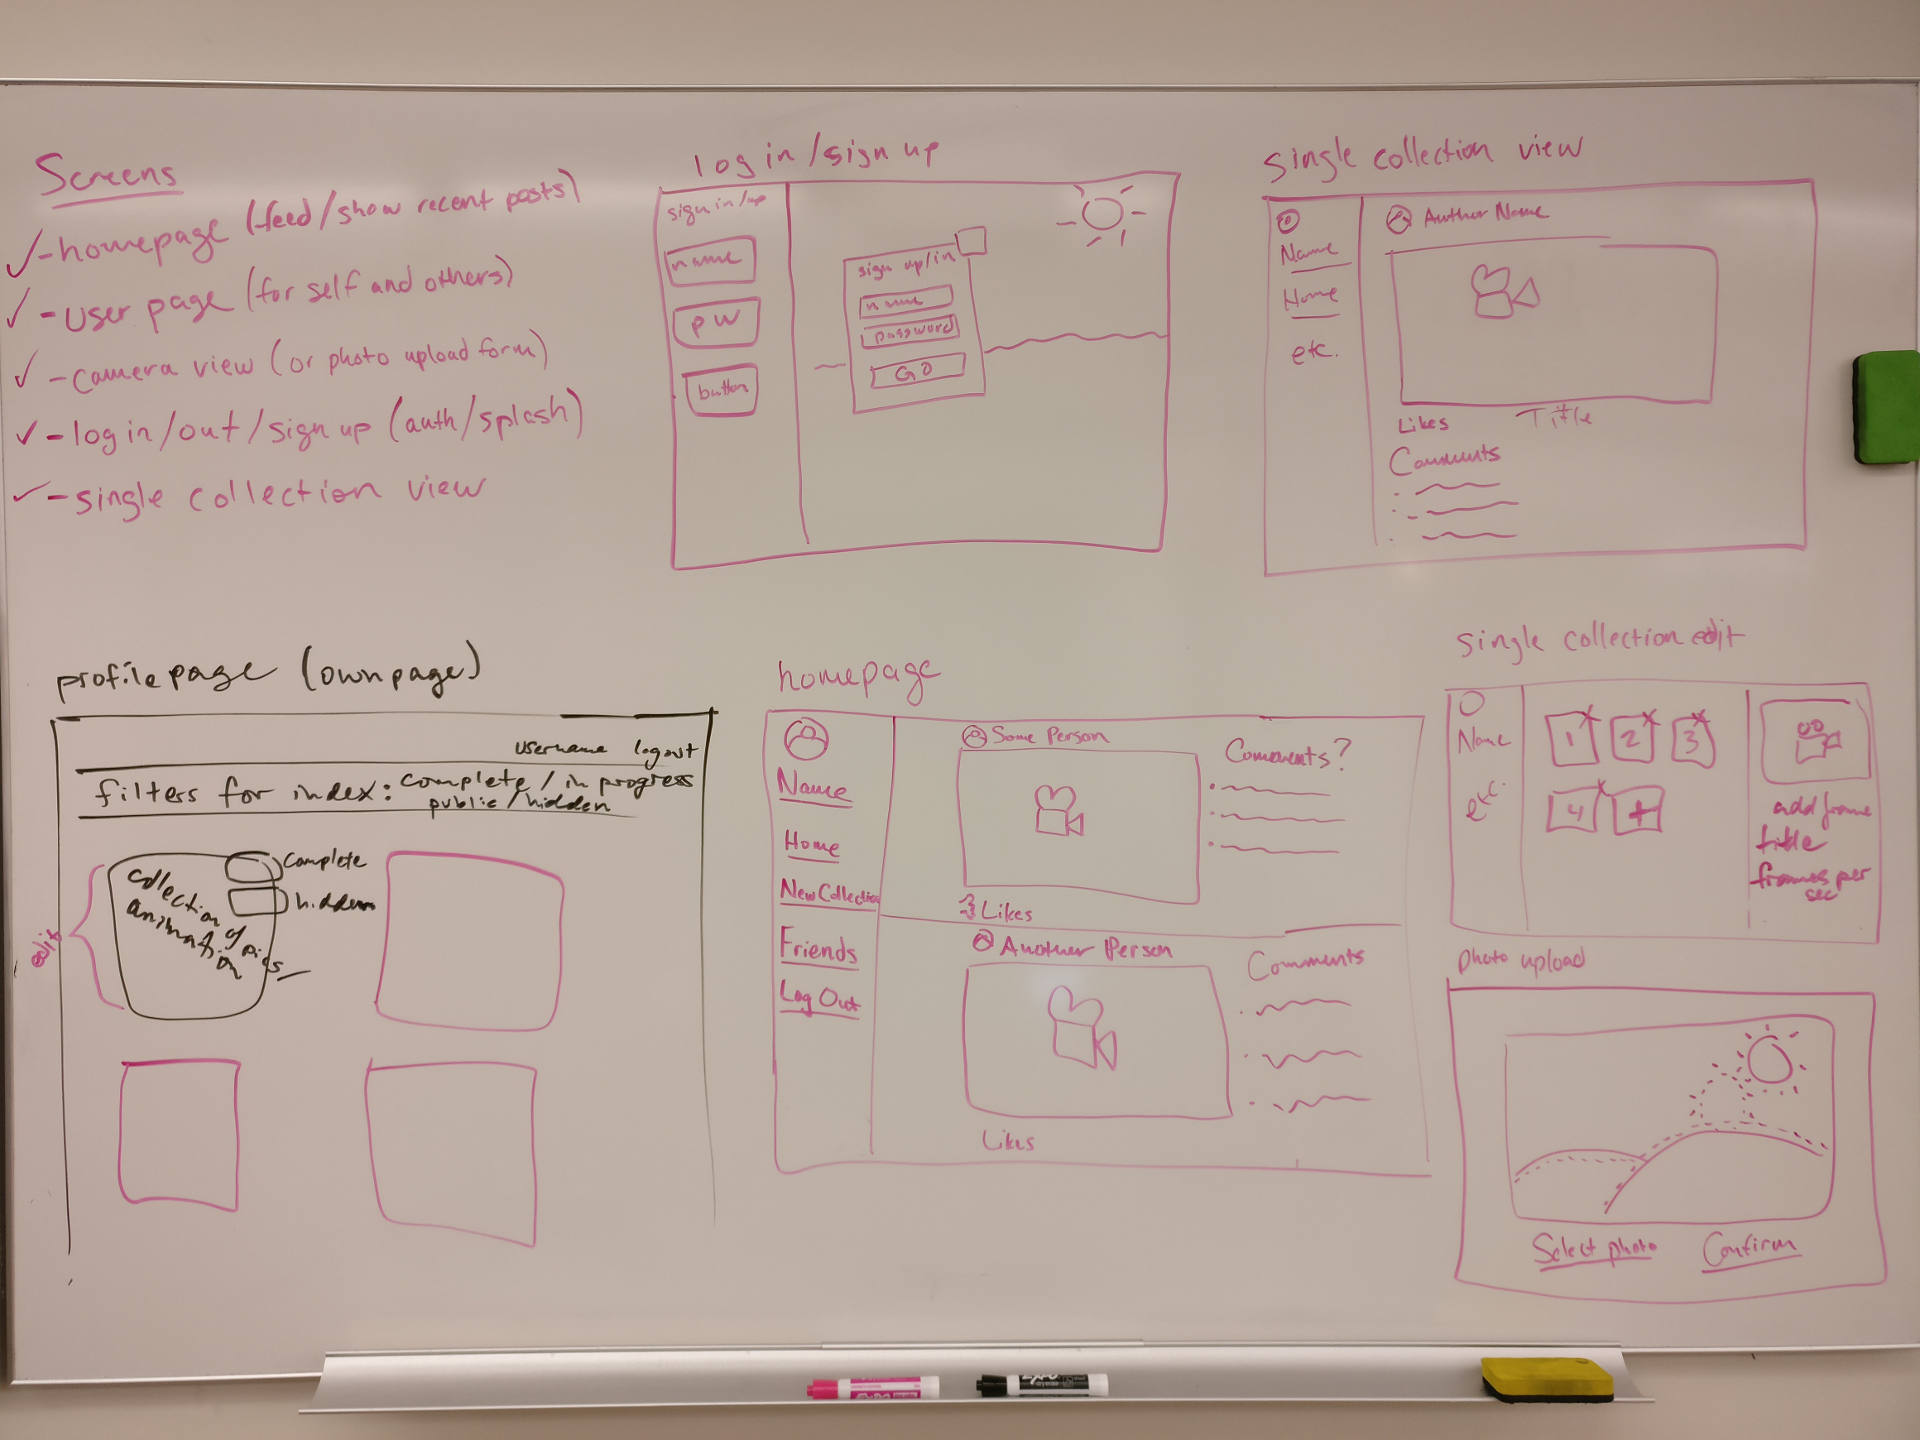 Screens
-homepage (feed/show recent posts)
-user page (for self and others)
-camera view (or photo upload form)
-log in/out/sign up (auth/splash)
-single collection view
log in/sign up
sign in/up
name
pw
button
sign up/in
name
password
GO
single collection view
Name
Home
etc.
Author Name
Likes
Title
Comments
profile page (own page)
username logout
filters for index: complete / in progress
public/hidden
edit
collection of pics
animation
Complete
hidden
homepage
Name
Home
New Collection
Friends
Log Out
Some Person
Comments?
Likes
Another Person
Comments
Likes
single collection edit
Name
etc.
1 2 3
4 +
add frame
title
frames per
sec
photo upload
Select photo
Confirm